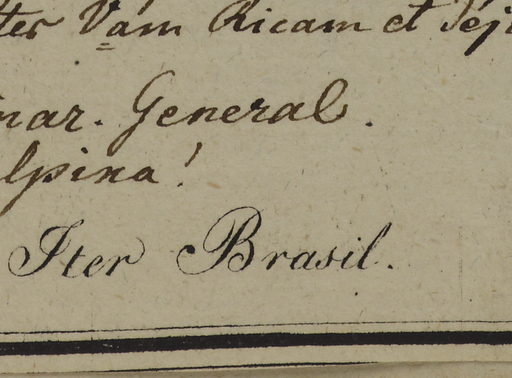 ter Vam Ricam et Tej
nar. General.
lpina!
Iter Brasil.